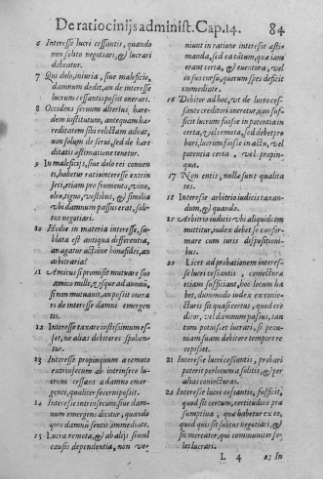 De ratiocinijs administ. Cap. 14. 84
6 Interesse lucri cessantis, quando
non solito negotiari, & lucrari
debeatur.
7 Qui dolo, iniuria, siue maleficio,
damnum dedit, an de interesse
lucrum cessantis possit onerari.
8 Occidens seruum alterius, hære-
dem institutum, antequam hæ-
reditatem sibi relictam adeat,
non solum de seruo, sed de hære-
ditatis æstimatione tenetur.
9 In maleficijs, siue dolo rei conuen-
ti, habetur ratio interesse extrin-
seci, etiam pro frumento, vino,
oleo, ligno, vestibus, & similia
vbi damnum passus erat, soli-
tus negotiari.
10 Hodie in materia interesse, su-
blata est antiqua differentia,
an agatur actione bonæ fidei, an
arbitraria?
11 Amicus si promisit mutuare suo
amico mille, & isque ad annum,
si non mutuauit, an possit onera-
ri de interesse damni emergen-
tis.
12 Interesse taxare certissimum es-
set, ne alias debitores spolian-
tur.
13 Interesse propinquum a remoto
extrinsecum ab intrinseco lu-
crum cessans a damno emer-
gente, qualiter secerni possit.
14 Interesse intrinsecum, siue dam-
num emergens dicatur, quando
quis damnum sentit immediate.
15 Lucra remota, & ab alijs simul
causis dependentia, non ve-
niunt in ratione interesse æstimanda, sed ea tantum, quæ iam
erant certa, & euentura, vel
in suo cursu, quorum spes deficit
immediate.
16 Debitor ad hoc, vt de lucro ces-
sante creditori teneatur, non suf-
ficit lucrum fuisse in potentia in
certa, & remota, sed debet pro-
bari, lucrum fuisse in actu, vel
potentia certa, vel propin-
qua.
17 Non entis, nulla sunt qualita-
tes.
18 Interesse arbitrio iudicis taxan-
dum, & quando.
19 Arbitrio iudicis vbi aliquid com
mittitur, iudex debet se confir-
mare cum iuris dispositioni-
bus.
20 Licet ad probationem interes-
se lucri cessantis, coniectura
etiam sufficiant, hoc locum ha-
bet, dummodo iudex ex coniec-
turis sit quasi certus, quod cre-
ditor, vel damnum passus, tan-
tum potuisset lucrari, si pecu-
niam suam debitore tempore re-
cepisset.
21 Interesse lucri cessantis, probari
poterit per communia solita, & per
alias coniecturas.
22 Interesse lucri cessantis, sufficit,
quod sit certum, certitudine præ
sumptiua, quæ habetur ex eo,
quod quis sit solitus negotiari, &
sit mercator, qui communiter so-
let lucrari.
L 4 23 In